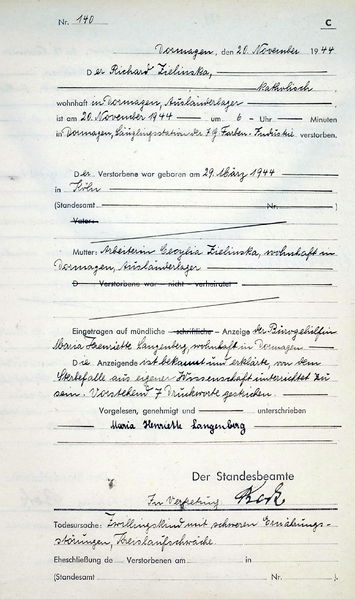 Nr. 140 C
Dormagen, den 20. November 1944
Der Richard Zielinska,
katholisch
wohnhaft in Dormagen, Ausländerlager
ist am 20. November 1944 um 6 Uhr Minuten
in Dormagen, Säuglingsstation der I.G. Farben-Industrie verstorben.
Der Verstorbene war geboren am 29. März 1944
in Köln
(Standesamt Nr. )
Vater:
Mutter: Arbeiterin Cecylia Zielinska, wohnhaft in
Dormagen, Ausländerlager
D Verstorbene war nicht verheiratet
Eingetragen auf mündliche schriftliche Anzeige der Bürogehilfin
Maria Henriette Langenberg, wohnhaft in Dormagen
Die Anzeigende ist bekannt und erklärte, von dem
Sterbefalle aus eigener Wissenschaft unterrichtet zu
sein. Vorstehend 7 Druckworte gestrichen.
Vorgelesen, genehmigt und unterschrieben
Maria Henriette Langenberg
Der Standesbeamte
In Vertretung
Todesursache: Zwillingskind mit schweren Ernährungs-
störungen, Kreislaufschwäche
Eheschließung de Verstorbenen am in
(Standesamt Nr. ).